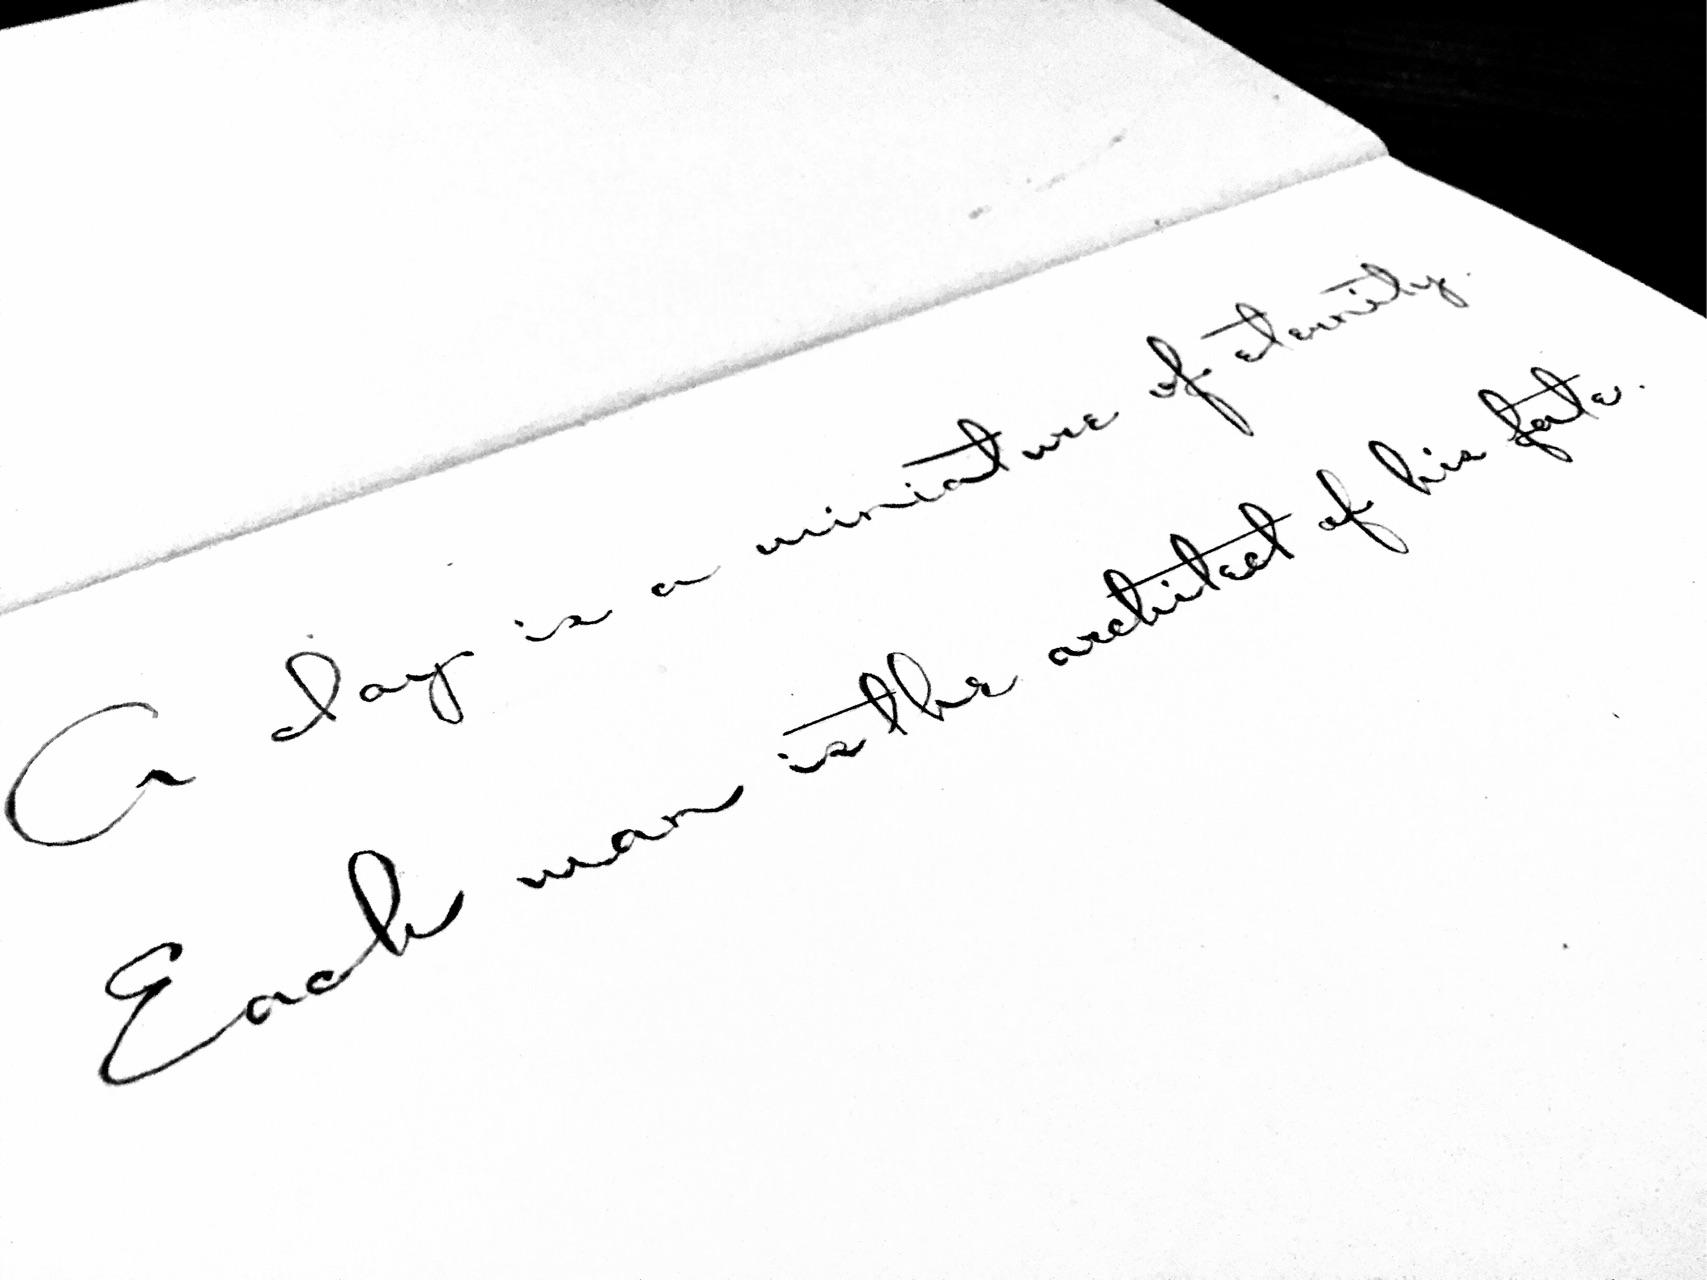 A day is a miniature of eternity.
Each man is the architect of his fate.